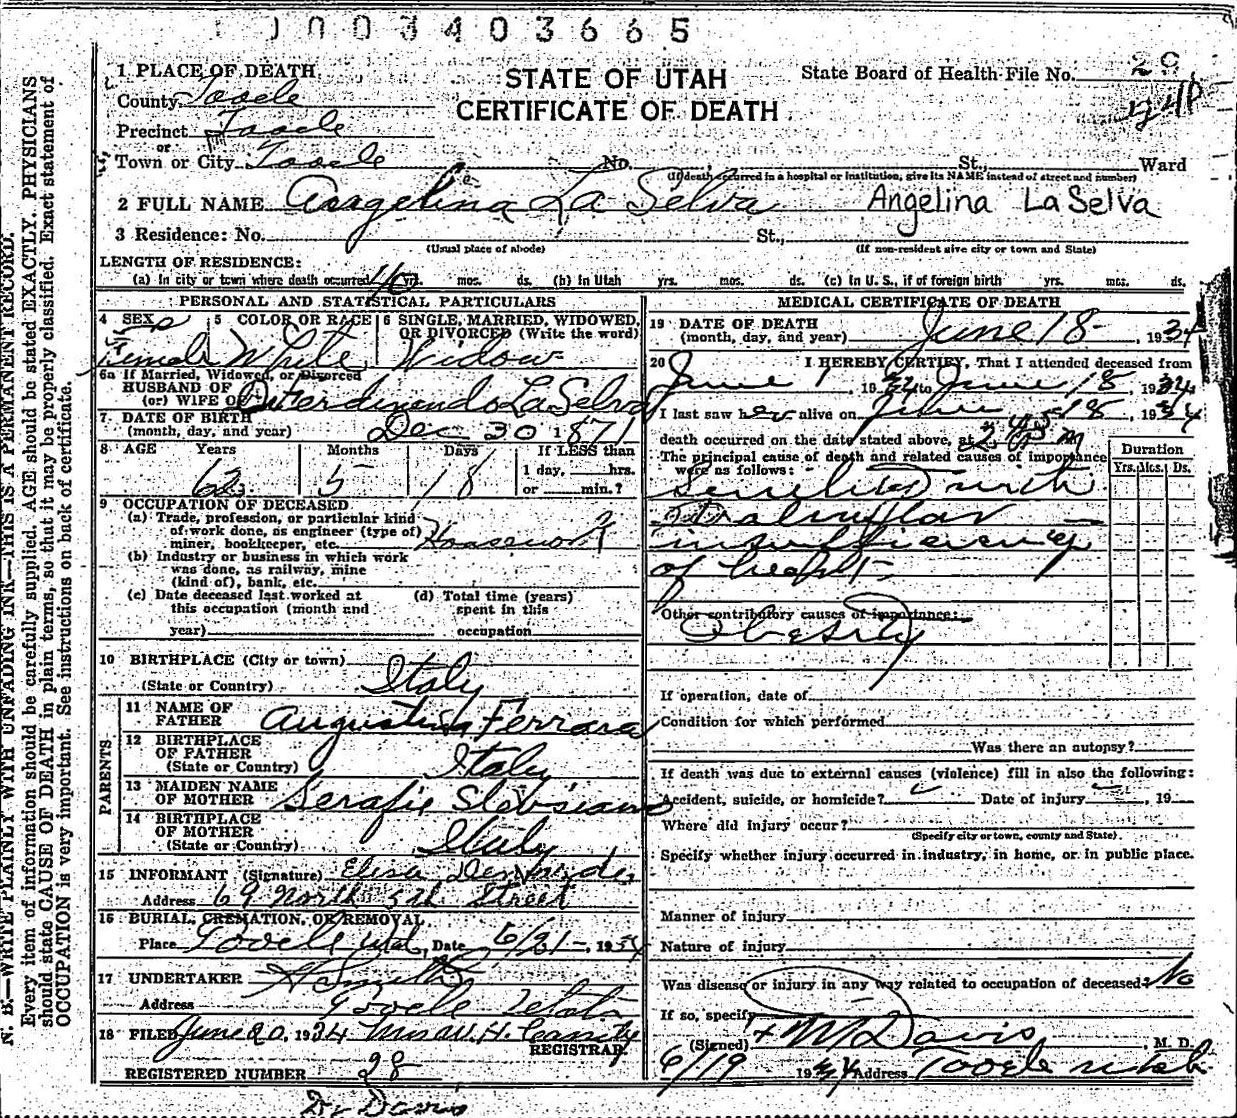 1003403665
STATE OF UTAH
CERTIFICATE OF DEATH
State Board of Health File No. 29
1 PLACE OF DEATH
County Tooele
Precinct Tooele
or
Town or City Tooele No. St., Ward
(If death occurred in a hospital or institution, give its NAME instead of street and number)
2 FULL NAME Angelina La Selva Angelina La Selva
3 Residence: No. St.,
(Usual place of abode) (If non-resident give city or town and State)
LENGTH OF RESIDENCE:
(a) In city or town where death occurred 40 mos. ds. (b) In Utah yrs. mos. ds. (c) In U. S., if of foreign birth yrs. mos. ds.
PERSONAL AND STATISTICAL PARTICULARS
4 SEX 5 COLOR OR RACE 6 SINGLE, MARRIED, WIDOWED, OR DIVORCED (Write the word)
Female White Widow
6a If Married, Widowed, or Divorced
HUSBAND OF
(or) WIFE OF Ferdinendo La Selva
7 DATE OF BIRTH
(month, day, and year) Dec 30 1871
8 AGE Years Months Days If LESS than
1 day, hrs.
62 5 18 or min.?
9 OCCUPATION OF DECEASED
(a) Trade, profession, or particular kind
of work done, as engineer (type of)
miner, bookkeeper, etc. Housework
(b) Industry or business in which work
was done, as railway, mine
(kind of), bank, etc.
(c) Date deceased last worked at (d) Total time (years)
this occupation (month and spent in this
year) occupation
10 BIRTHPLACE (City or town)
(State or Country) Italy
PARENTS
11 NAME OF
FATHER Ferrara
12 BIRTHPLACE
OF FATHER
(State or Country) Italy
13 MAIDEN NAME
OF MOTHER Serafie
14 BIRTHPLACE
OF MOTHER
(State or Country) Italy
15 INFORMANT (Signature) Elisa
Address 69 North 5th Street
16 BURIAL, CREMATION, OR REMOVAL
Place Tooele Utah, Date 6/21- 1934
17 UNDERTAKER Smith
Address Tooele Utah
18 FILED June 20, 1934 Mrs W. H.
REGISTRAR
REGISTERED NUMBER 28
Dr Davis
MEDICAL CERTIFICATE OF DEATH
19 DATE OF DEATH
(month, day, and year) June 18- , 1934
20 I HEREBY CERTIFY, That I attended deceased from
June 1, 1934 to June 18, 1934
I last saw her alive on June 18, 1934
death occurred on the date stated above, at 2 45 P m
The principal cause of death and related causes of importance
were as follows:
Duration
Yrs. Mos. Ds.
Senility with
Valvular
insufficiency
of heart
Other contributory causes of importance:
Obesity
If operation, date of
Condition for which performed
Was there an autopsy?
If death was due to external causes (violence) fill in also the following:
Accident, suicide, or homicide? Date of injury , 19
Where did injury occur?
(Specify city or town, county and State)
Specify whether injury occurred in industry, in home, or in public place.
Manner of injury
Nature of injury
Was disease or injury in any way related to occupation of deceased? No
If so, specify
(Signed) Davis , M. D.
6/19 1934 Address Tooele Utah
N. B.—WRITE PLAINLY WITH UNFADING INK—THIS IS A PERMANENT RECORD.
Every item of information should be carefully supplied. AGE should be stated EXACTLY. PHYSICIANS
should state CAUSE OF DEATH in plain terms, so that it may be properly classified. Exact statement of
OCCUPATION is very important. See instructions on back of certificate.